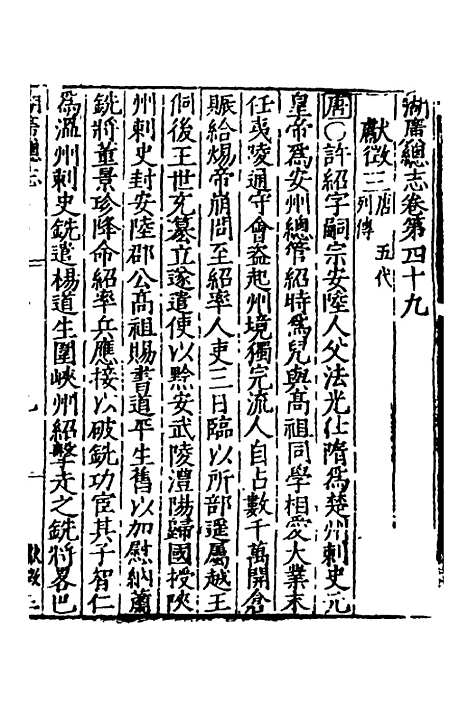 湖廣總志卷第四十九
獻徵三列傳 唐 五代
唐○許紹字嗣宗安陸人父法光仕隋爲楚州刺史元
皇帝爲安州總管紹時爲兒與高祖同學相愛大業末
任夷陵通守會盜起州境獨完流人自占數千萬開倉
賑給煬帝崩問至紹率人吏三日臨以所部遥屬越王
侗後王世充篡立遂遣使以黔安武陵澧陽歸國授陜
州刺史封安陸郡公高祖賜書道平生舊以加慰納蕭
銑將董景珍降命紹率兵應接以破銑功宦其子智仁
爲溫州刺史銑遣楊道生圍峽州紹擊走之銑將畧巴